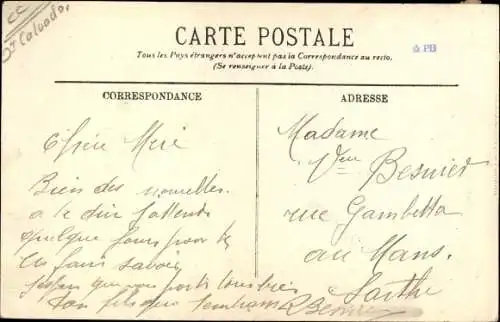 Dt Calvados
CARTE POSTALE
Tous les Pays étrangers n'acceptent pas la Correspondance au recto.
(Se renseigner à la Poste).
PB
CORRESPONDANCE
ADRESSE
Chère Mère
Bien des nouvelles
a te dire j'attends
quelque jours pour te
les faire savoir
que vous
Ton fils que
Besnier
Madame
Vve Besnier
rue Gambetta
au Mans.
Sarthe